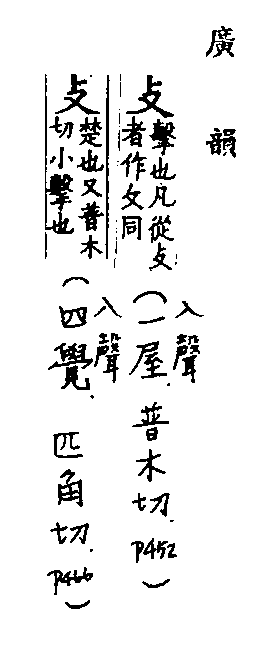 廣韻
攴 擊也凡從攴者作攵同（入聲一屋．普木切．P452）
攴 楚也又普木切小擊也（入聲四覺．匹角切．P466）